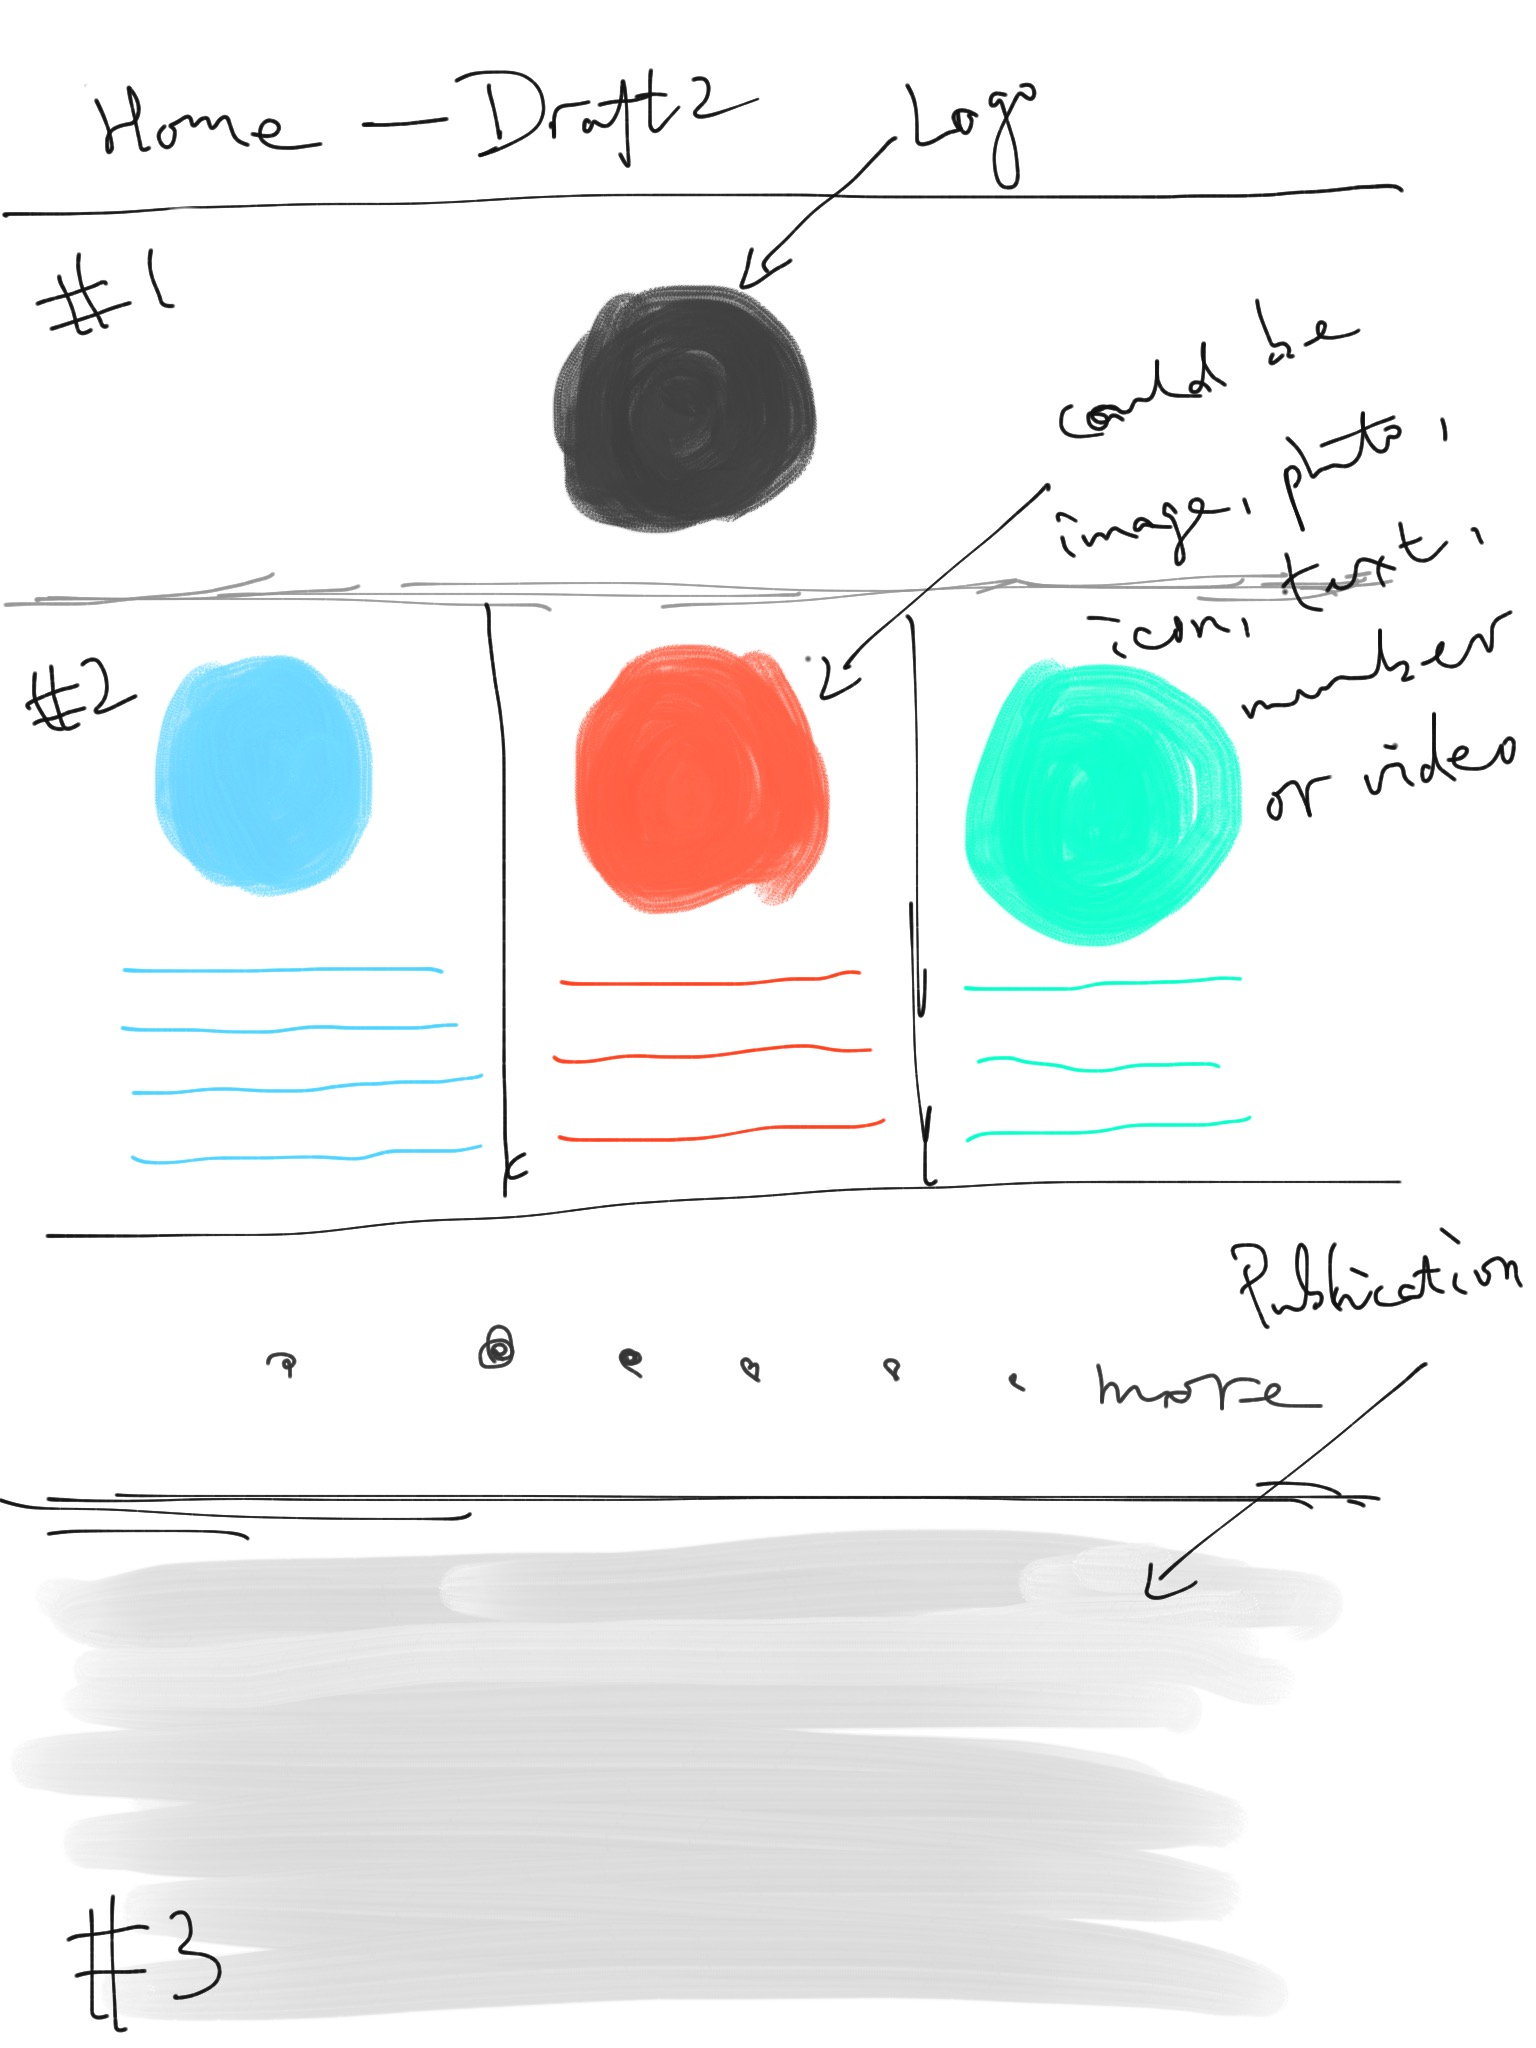 Home — Draft 2
Logo
#1
could be
image, photo,
icon, text,
number
or video
#2
Publication
more
#3